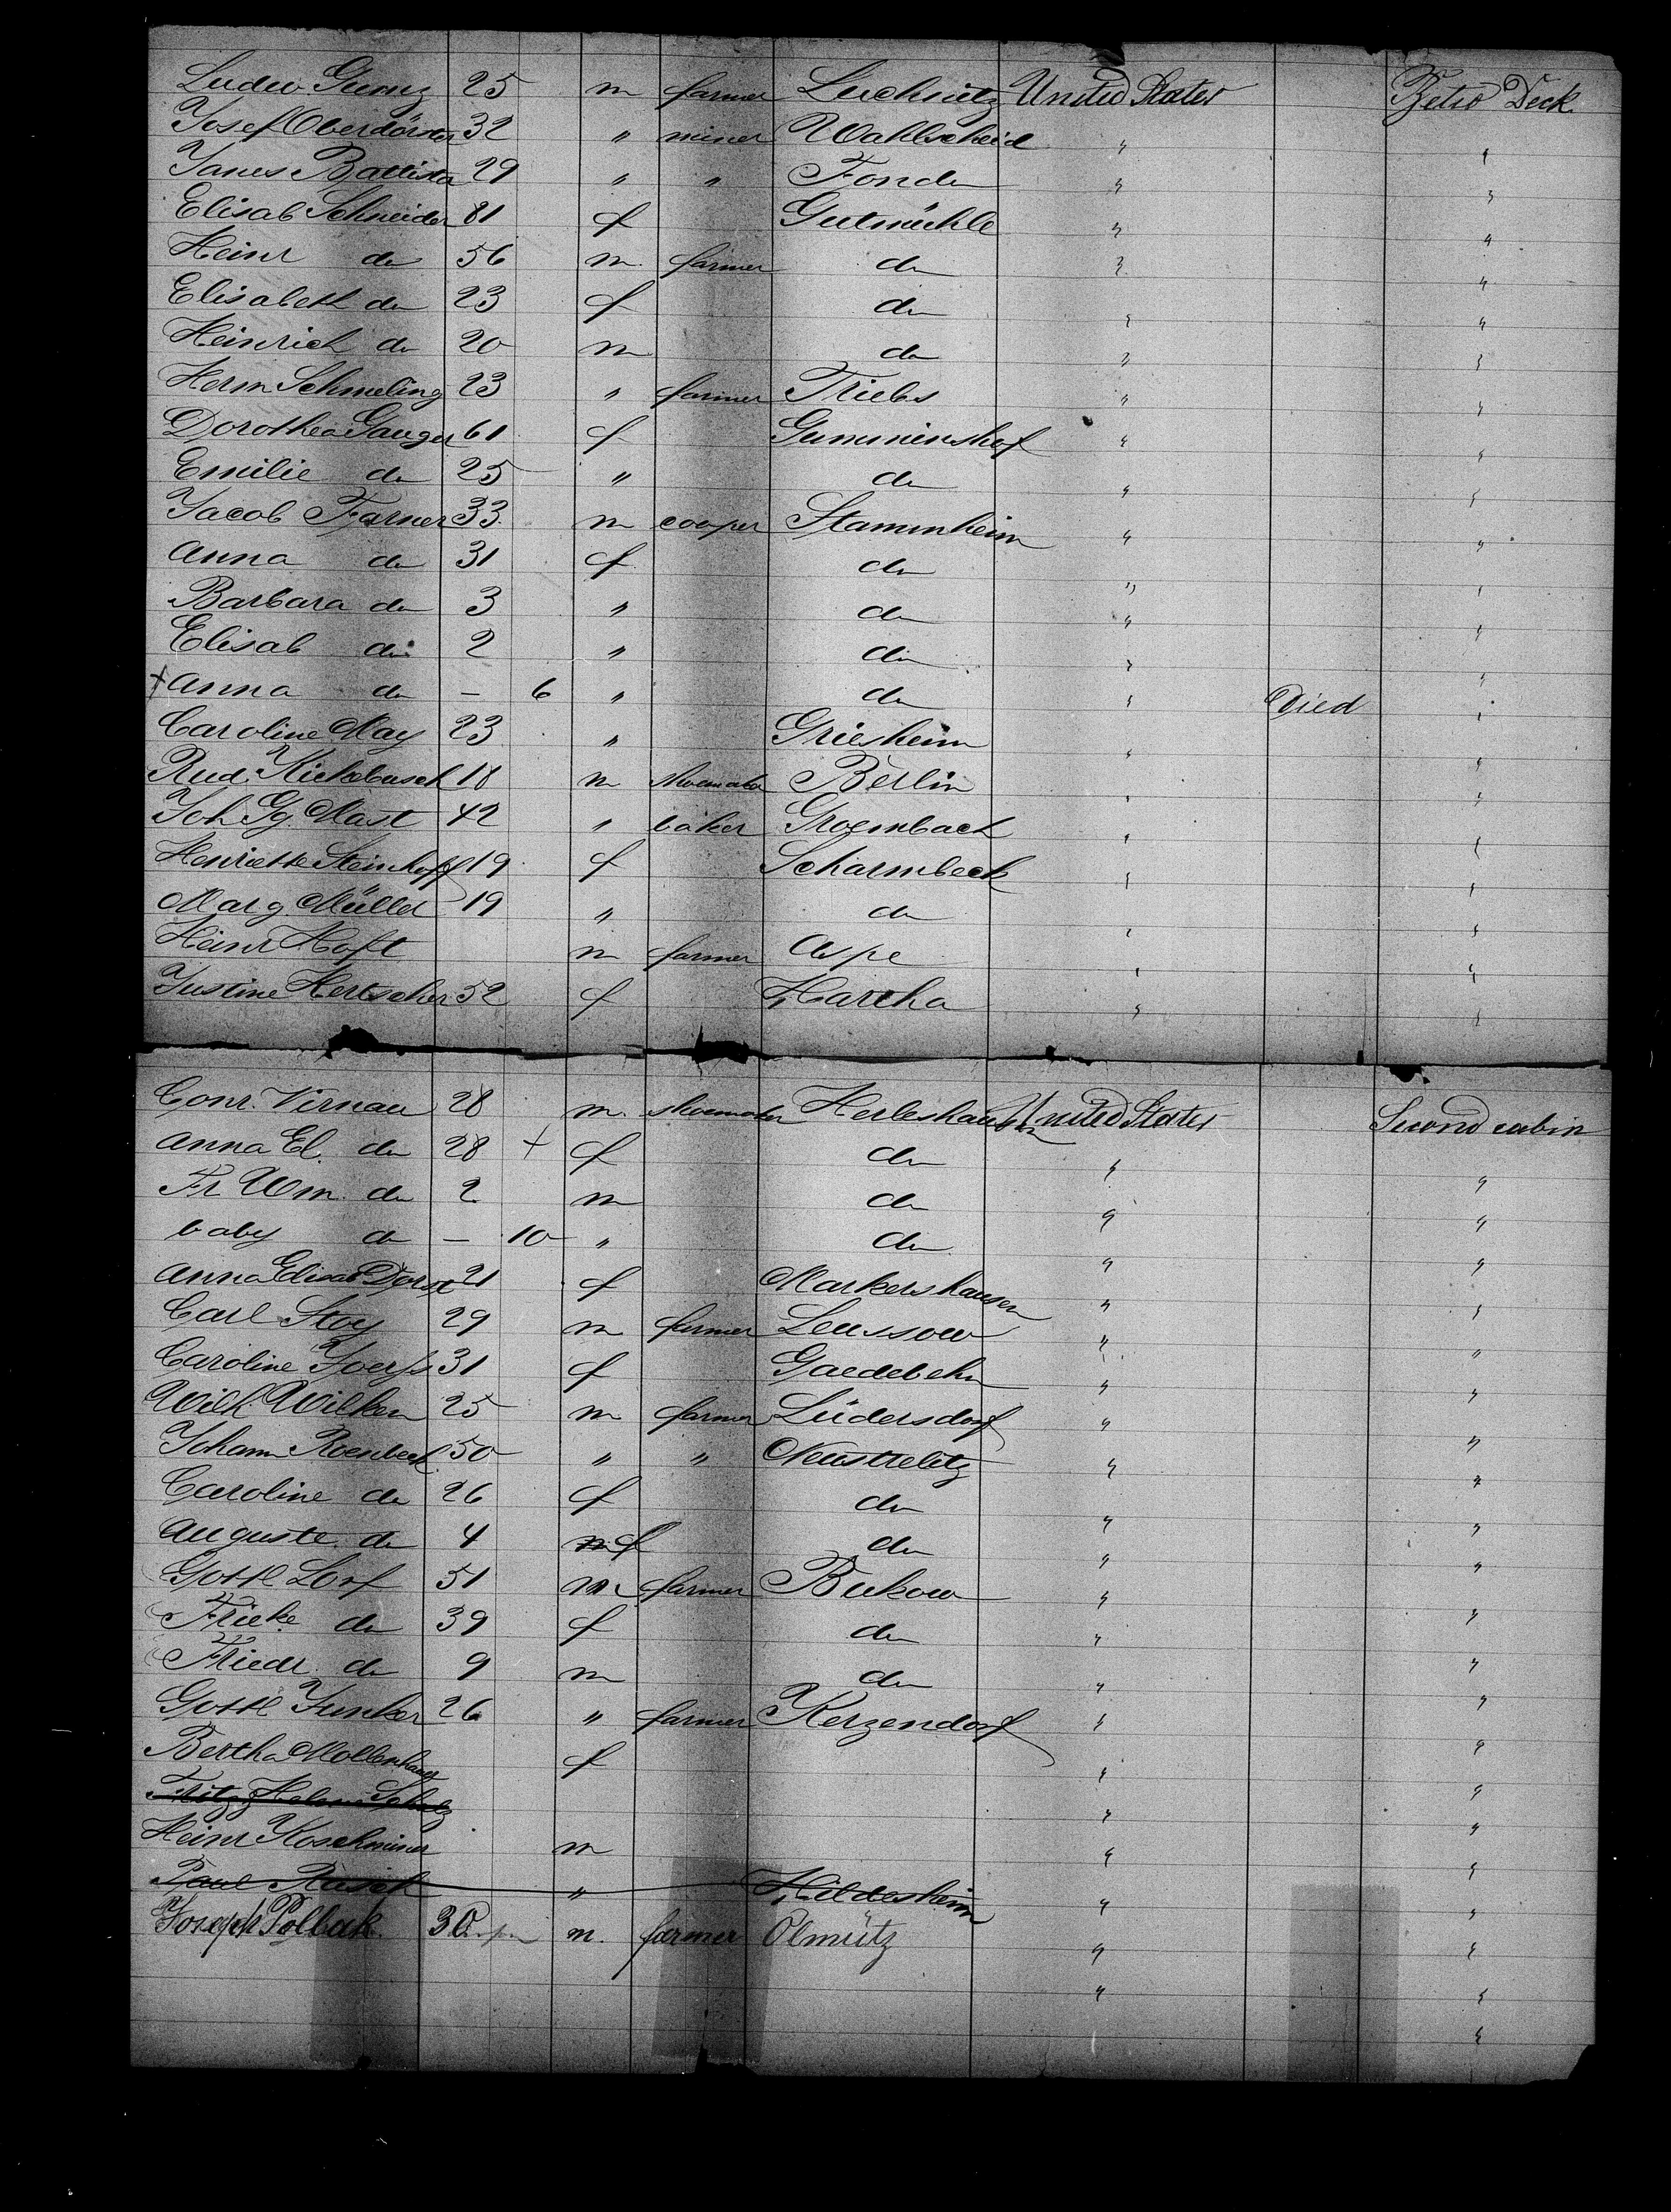 Ludw Gumz 25 m farmer Luchnitz United States Betw Deck
Josef Oberdörster 32 " miner Wahlscheid " "
Janes Battista 29 " " Fonde " "
Elisab Schneider 81 f Gutmühle " "
Heinr do 56 m farmer do " "
Elisabeth do 23 f do " "
Heinrich do 20 m do " "
Herm Schmeling 23 " farmer Triebs " "
Dorothea Gauger 61 f Gumminshof " "
Emilie do 25 " do " "
Jacob Farner 33 m cooper Stammheim " "
Anna do 31 f do " "
Barbara do 3 " do " "
Elisab do 2 " do " "
+ Anna do - 6 " do " Died "
Caroline May 23 " Griesheim " "
Rud. Kickebusch 18 m shoemaker Berlin " "
Joh Gg. Mast 42 " baker Groembach " "
Henriette Steinhoff 19 f Scharmbeck " "
Marg. Müller 19 " do " "
Heinr Hoft m farmer Aspe " "
Justine Hertscher 52 f Hartha " "
Conr. Virnau 28 m. shoemaker Herleshausen United States Second cabin
Anna El. do 28 + f do " "
Fr Wm. do 2 m do " "
baby do - 10 " do " "
Anna Elisab Dorst 21 f Markershausen " "
Carl Stoy 29 m farmer Leussow " "
Caroline Joerss 31 f Gaedebehn " "
Wilh. Wilken 25 m farmer Lüdersdorf " "
Johann Roenbeck 50 " " Neustrelitz " "
Caroline do 26 f do " "
Auguste do 4 m f do " "
Gottl Lorf 51 m farmer Bukow " "
Frieke do 39 f do " "
Friedr. do 9 m do " "
Gottl Junker 26 " farmer Kerzendorf " "
Bertha Mollenhauer f " "
Fritz Holm Scholz " "
Heinr Koschminer m " "
Paul Rusick " Hildesheim " "
Joseph Pollak. 30 m. farmer Olmütz " "
" "
"